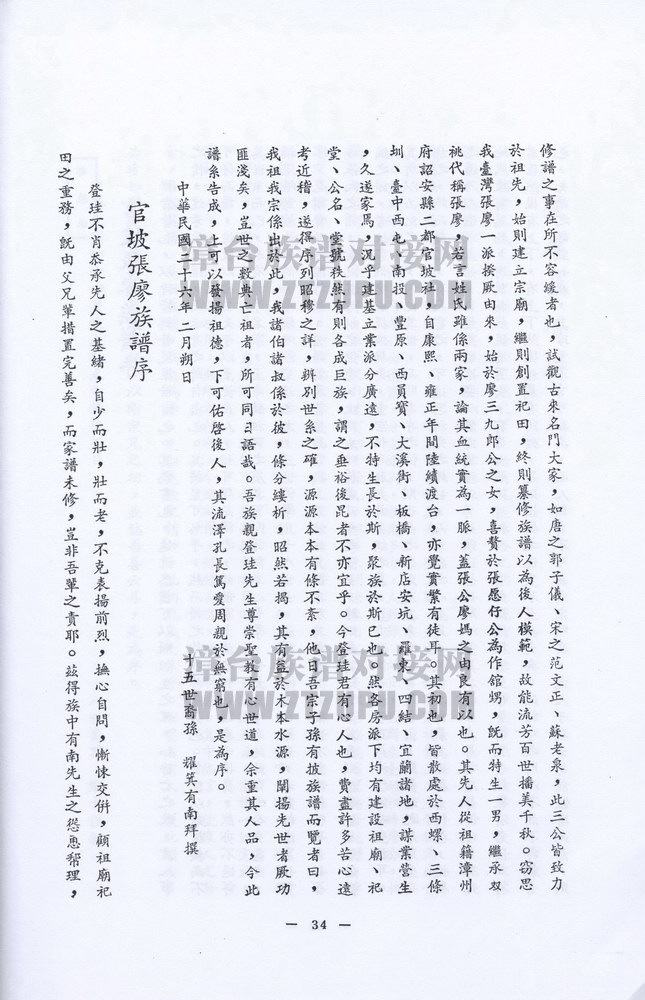 修譜之事在所不容緩者也，試觀古來名門大家，如唐之郭子儀、宋之范文正、蘇老泉，此三公皆致力
於祖先，始則建立宗廟，繼則創置祀田，終則纂修族譜以為後人模範，故能流芳百世播美千秋。窃思
我臺灣張廖一派揆厥由來，始於廖三九郎公之女，喜贅於張愿仔公為作舘甥，旣而特生一男，繼承双
祧代稱張廖，若言姓氏雖係兩家，論其血統實為一脈，蓋張公廖媽之由良有以也。其先人從祖籍漳州
府詔安縣二都官坡社，自康熙、雍正年間陸續渡台，亦覺實繁有徒耳，其初也，皆散處於西螺、三條
圳、臺中西屯、南投、豐原、西員寶、大溪街、板橋、新店安坑、羅東、四結、宜蘭諸地，謀業營生
，久遂家焉，況乎建基立業派分廣遠，不特生長於斯，聚族於斯已也。然各房派下均有建設祖廟、祀
堂、公名、堂號秩然有則各成巨族，謂之垂裕後昆者不亦宜乎。今登珪君有心人也，費盡許多苦心遠
考近稽，遂得序列昭穆之詳，辨別世系之確，源源本本有條不紊，他日吾宗子孫有披族譜而覽者曰，
我祖我宗係出於此，我諸伯諸叔係於彼，條分縷析，昭然若揭，其有益於木本水源，闡揚先世者厥功
匪淺矣，豈世之數典亡祖者，所可同日語哉。吾族親登珪先生尊崇聖教有心世道，余重其人品，今此
譜系告成，上可以發揚祖德，下可佑啓後人，其流澤孔長篤愛周親於無窮也，是為序。
中華民國二十六年二月朔日
十五世裔孫　耀箕有南拜撰
官坡張廖族譜序
登珪不肖恭承先人之基緒，自少而壯，壯而老，不克表揚前烈，撫心自問，慚悚交倂，顧祖廟祀
田之重務，旣由父兄輩措置完善矣，而家譜未修，豈非吾輩之責耶。茲得族中有南先生之慫恿幫理，
— 34 —
漳台族譜对接网
WWW.ZTZUPU.COM
漳台族譜对接网
WWW.ZTZUPU.COM